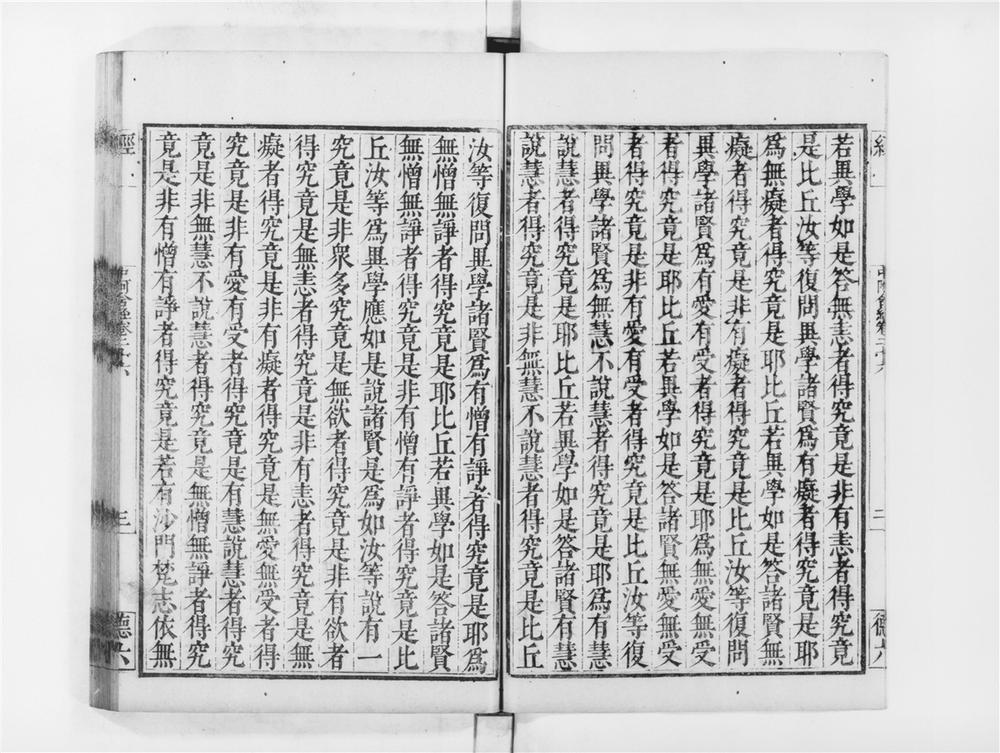 若異學如是答無恚者得究竟是非有恚者得究竟
是比丘汝等復問異學諸賢爲有癡者得究竟是耶
爲無癡者得究竟是耶比丘若異學如是答諸賢無
癡者得究竟是非有癡者得究竟是比丘汝等復問
異學諸賢爲有愛有受者得究竟是耶爲無愛無受
者得究竟是耶比丘若異學如是答諸賢無愛無受
者得究竟是非有愛有受者得究竟是比丘汝等復
問異學諸賢爲無慧不說慧者得究竟是耶爲有慧
說慧者得究竟是耶比丘若異學如是答諸賢有慧
說慧者得究竟是非無慧不說慧者得究竟是比丘
汝等復問異學諸賢爲有憎有諍者得究竟是耶爲
無憎無諍者得究竟是耶比丘若異學如是答諸賢
無憎無諍者得究竟是非有憎有諍者得究竟是比
丘汝等爲異學應如是說諸賢是爲如汝等說有一
究竟是非衆多究竟是無欲者得究竟是非有欲者
得究竟是無恚者得究竟是非有恚者得究竟是無
癡者得究竟是非有癡者得究竟是無愛無受者得
究竟是非有愛有受者得究竟是有慧說慧者得究
竟是非無慧不說慧者得究竟是無憎無諍者得究
竟是非有憎有諍者得究竟是若有沙門梵志依無
經
三
德六
二